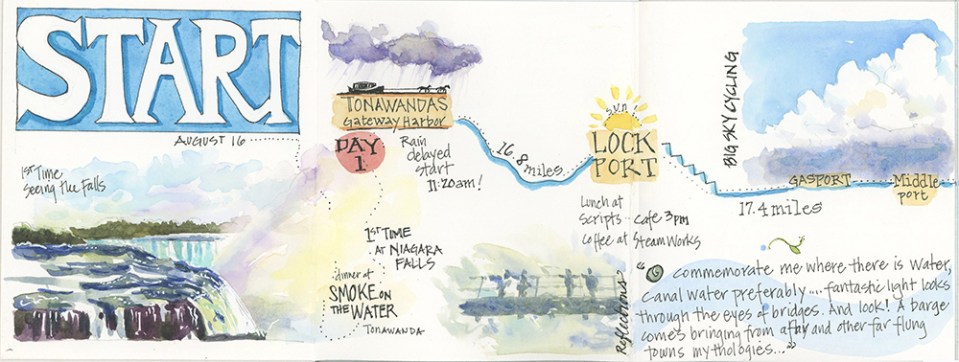 START
AUGUST 16
1st Time
Seeing the Falls
TONAWANDAS
Gateway Harbor
DAY
1
Rain
delayed
start
11:20am!
1ST TIME
AT NIAGARA
FALLS
dinner at
SMOKE ON
THE WATER
TONAWANDA
16.8 miles
SUN!
LOCK
PORT
Lunch at
Scripts cafe 3pm
Coffee at SteamWorks
Reflections
BIG SKY CYCLING
GASPORT
Middle
port
17.4 miles
"O commemorate me where there is water,
canal water preferably.... fantastic light looks
through the eyes of bridges. And look! A barge
comes bringing from afhy and other far flung
towns mythologies..."